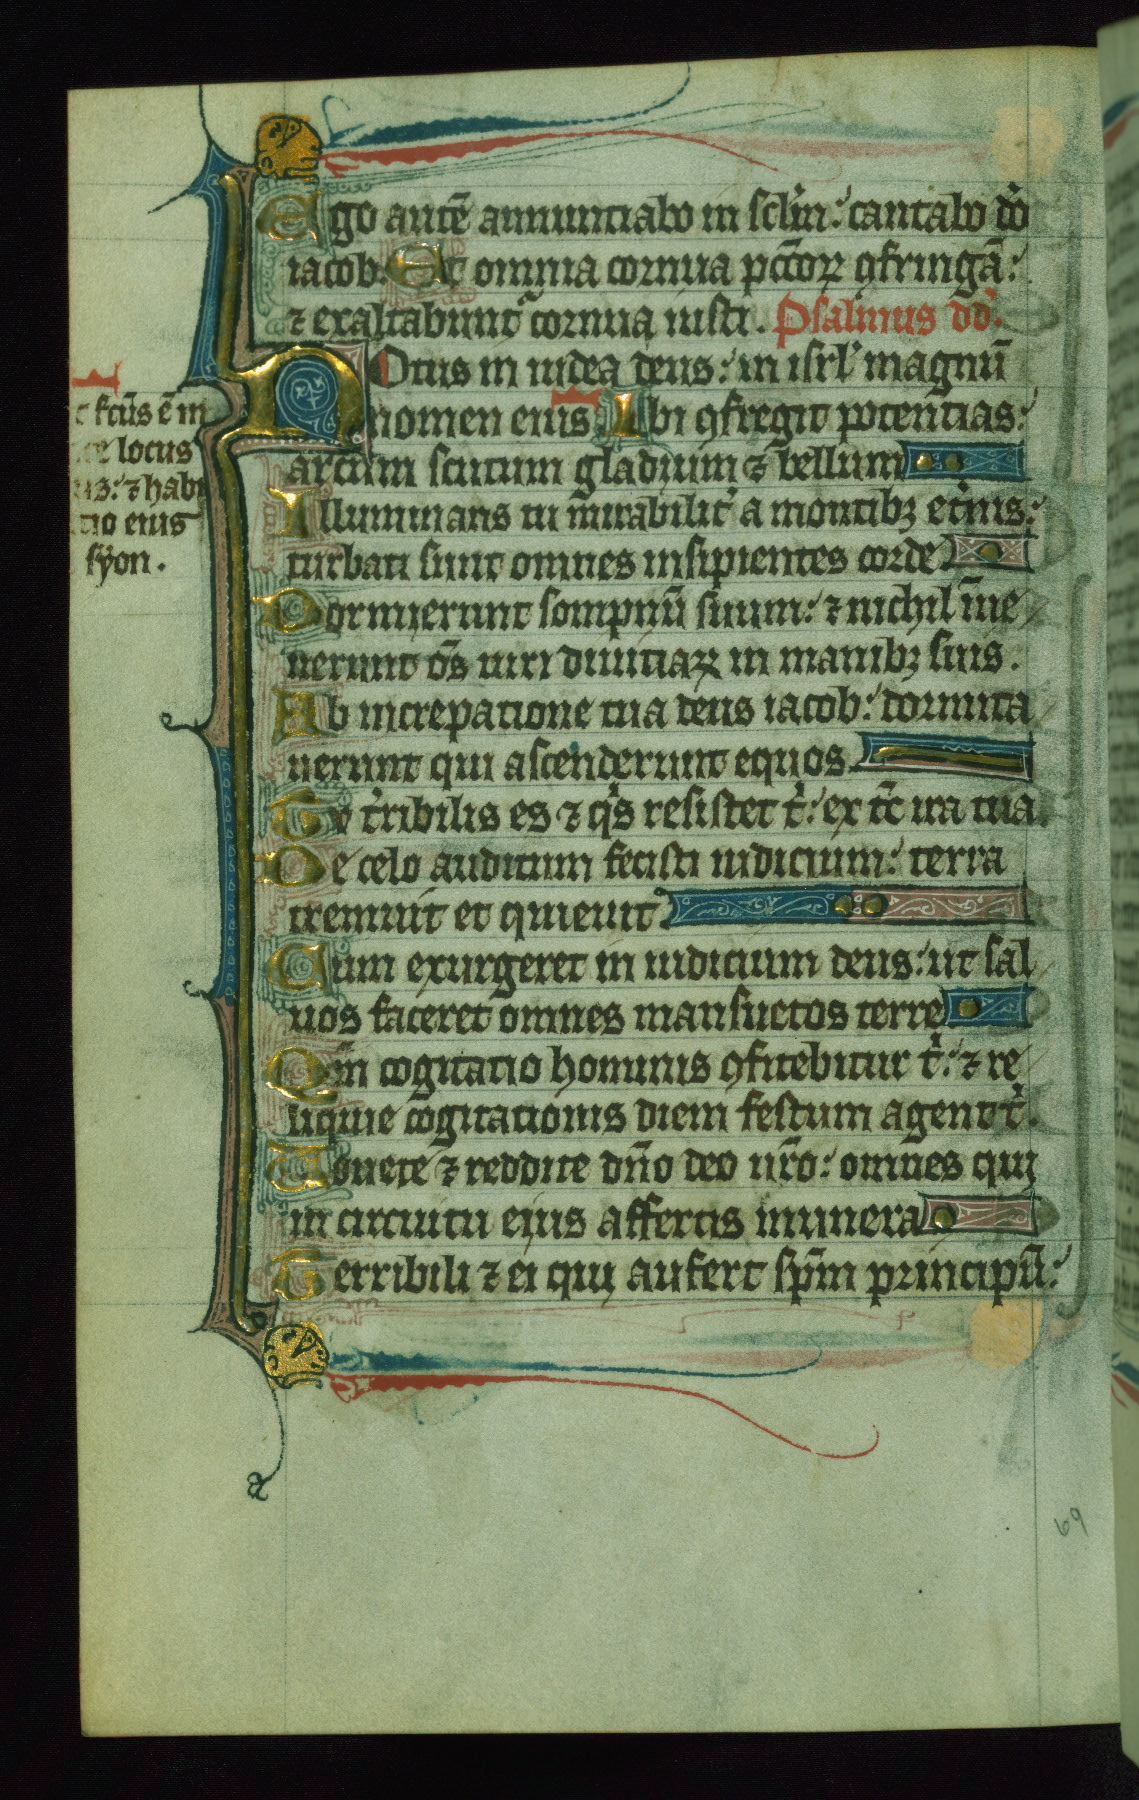 Ego autē annunciabo in sclm̄: cantabo dō
iacob. Et omnia cornua pc̄cor̄ ꝯfringā:
⁊ exaltabunt̄ cornua iusti. Psalmus dd̄.
NOtus in iudea deus: in isrl' magnū
nomen eius Ibi ꝯfregit potentias:
arcum scutum gladium ⁊ bellum
Illuminans tu mirabilit̄ a montibꝫ et̄nis:
turbati sunt omnes insipientes corde
Dormierunt sompnū suum: ⁊ nichil īue
nerunt oēs uiri diuiciaꝝ in manibꝫ suis.
Ab increpatione tua deus iacob: dormita
uerunt qui ascenderunt equos.
Tv t̄ribilis es ⁊ qͥs resistet t̄: ex tc̄ ira tua.
De celo auditum fecisti iudicium: terra
tremuit et quieuit.
Cum exurgeret in iudicium deus: ut sal
uos faceret omnes mansuetos terre
Qm̄ cogitatio hominis ꝯfitebitur tͥ: ⁊ re
liquie cogitationis diem festum agent tͥ.
Uouete ⁊ reddite dn̄o deo ur̄o: omnes qui
in circuitu eius affertis munera
Terribili ⁊ ei qui aufert sp̄m principū:
t fc̄us ē in
ce locus
us: ⁊ habi
tio eius
syon.
69